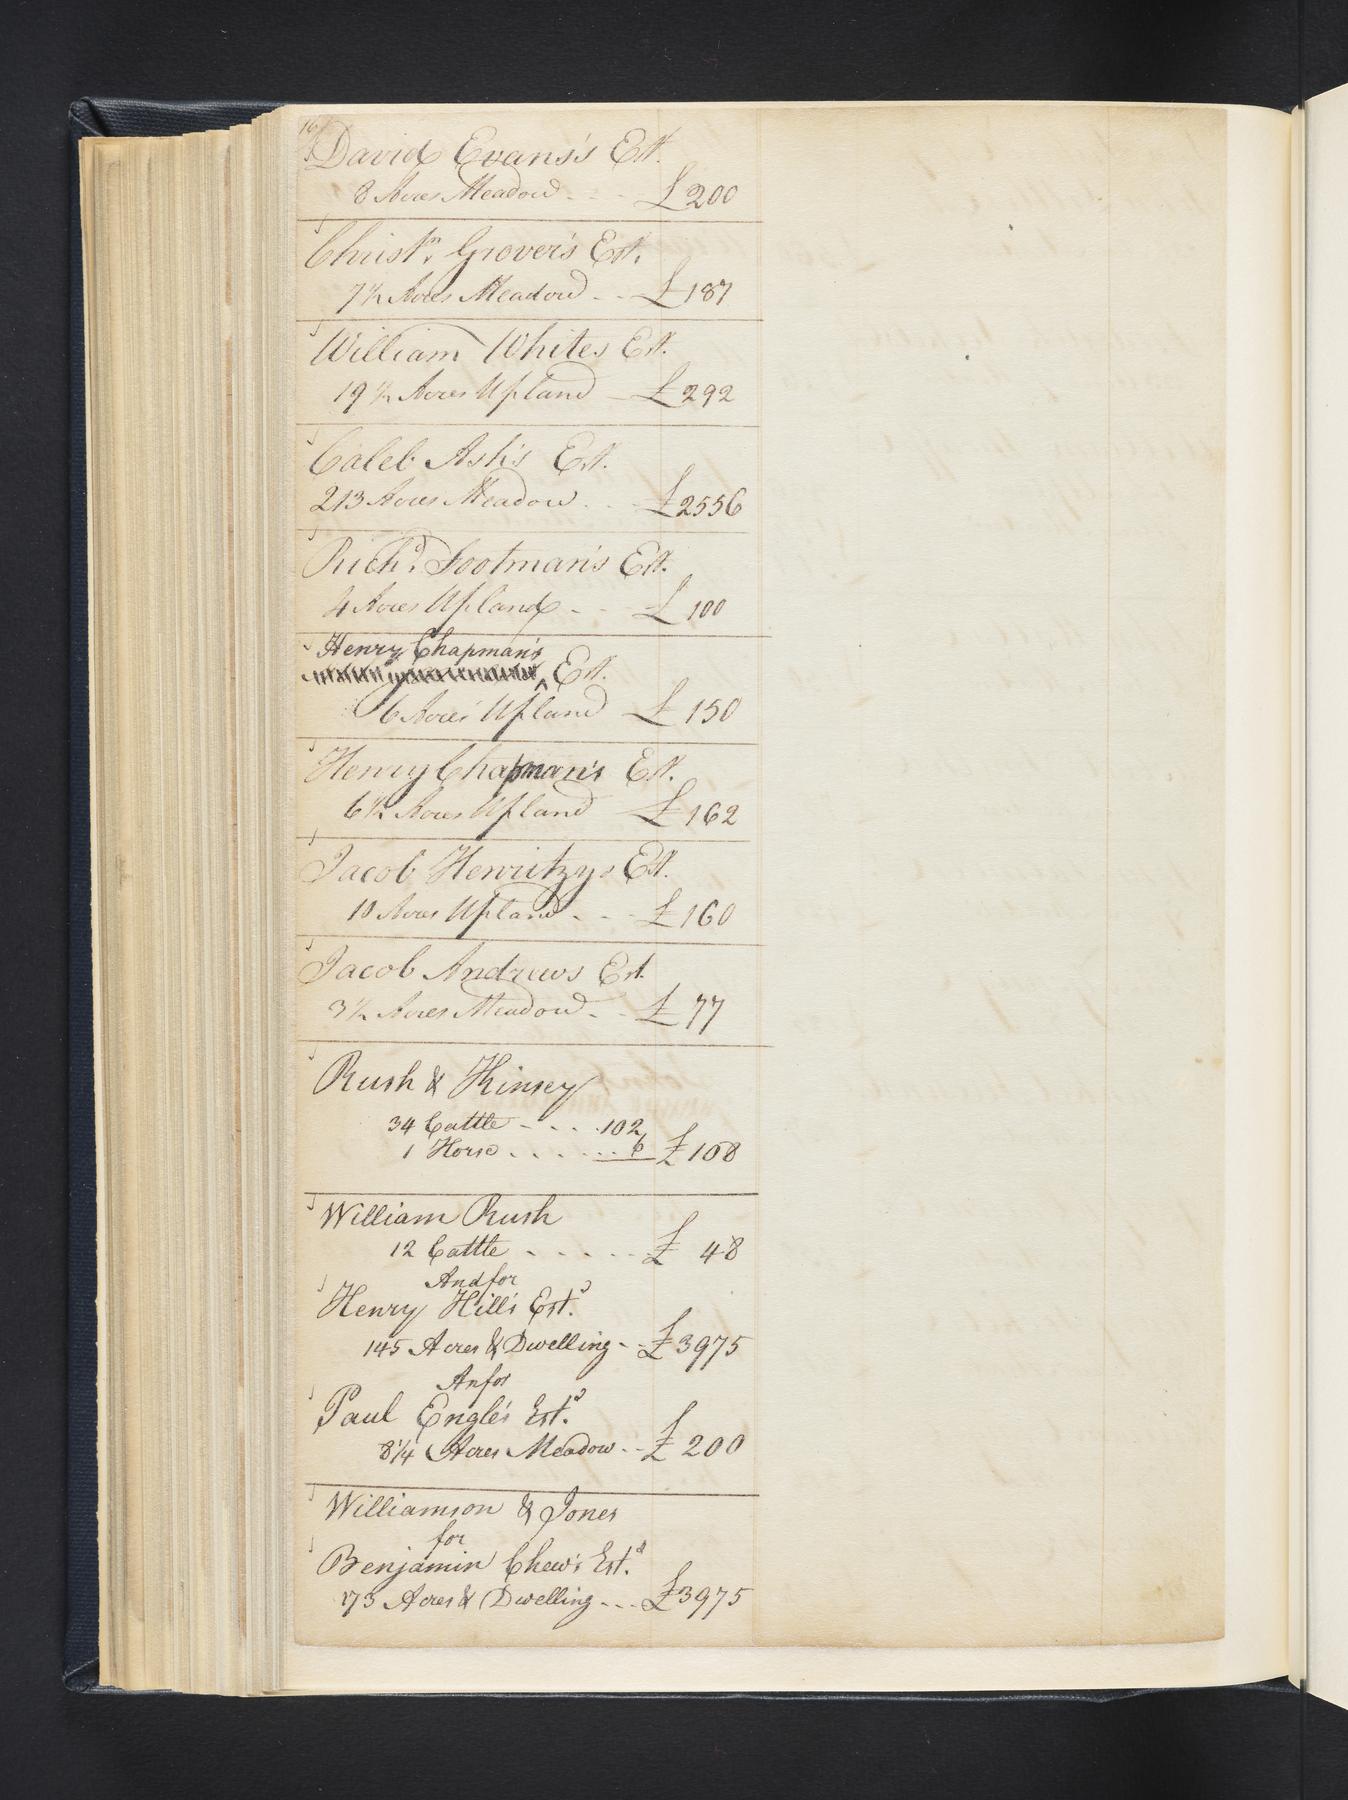 16
David Evans's Est.
8 Acres Meadow - - - £200
Christn. Grover's Est.
7½ Acres Meadow - - £187
William Whites Est.
19½ Acres Upland - £292
Caleb Ash's Est.
213 Acres Meadow - - - £2556
Richd. Footman's Est.
4 Acres Upland - - - £100
Henry Chapman's
^ Est.
6 Acres Upland - £150
Henry Chapman's Est.
6½ Acres Upland £162
Jacob Henritzys Est.
10 Acres Upland - - - £160
Jacob Andrews Est.
3½ Acres Meadow - - £77
Rush & Kinsey
34 Cattle - - - - 102
1 Horse - - - - - - 6 £108
William Rush
12 Cattle - - - - - - £ 48
And for
Henry Hill's Estd.
145 Acres & Dwelling - - £3975
Anfor
Paul Engle's Estd.
8¼ Acres Meadow - - £200
Williamson & Jones
for
Benjamin Chew's Estd.
173 Acres & Dwelling - - - £3975